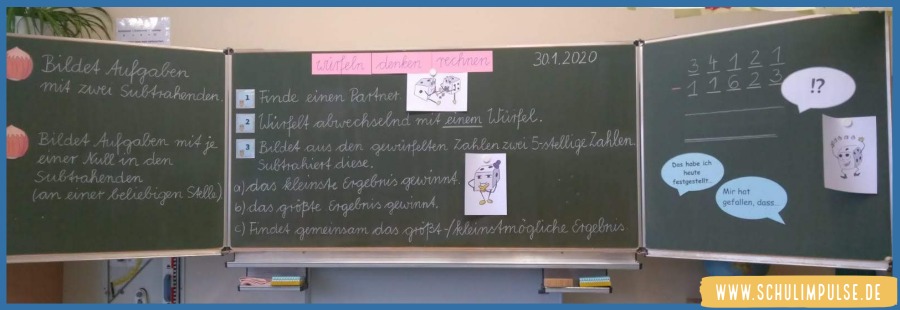 Bildet Aufgaben
mit zwei Subtrahenden.
Bildet Aufgaben mit je
einer Null in den
Subtrahenden
(an einer beliebigen Stelle)
würfeln denken rechnen
30.1.2020
1 Finde einen Partner.
2 Würfelt abwechselnd mit einem Würfel.
3 Bildet aus den gewürfelten Zahlen zwei 5-stellige Zahlen.
Subtrahiert diese.
a) das kleinste Ergebnis gewinnt.
b) das größte Ergebnis gewinnt.
c) Findet gemeinsam das größt-/kleinstmögliche Ergebnis.
3 4 1 2 1
- 1 1 6 2 3
!?
Das habe ich
heute
festgestellt...
Mir hat
gefallen, dass...
WWW.SCHULIMPULSE.DE